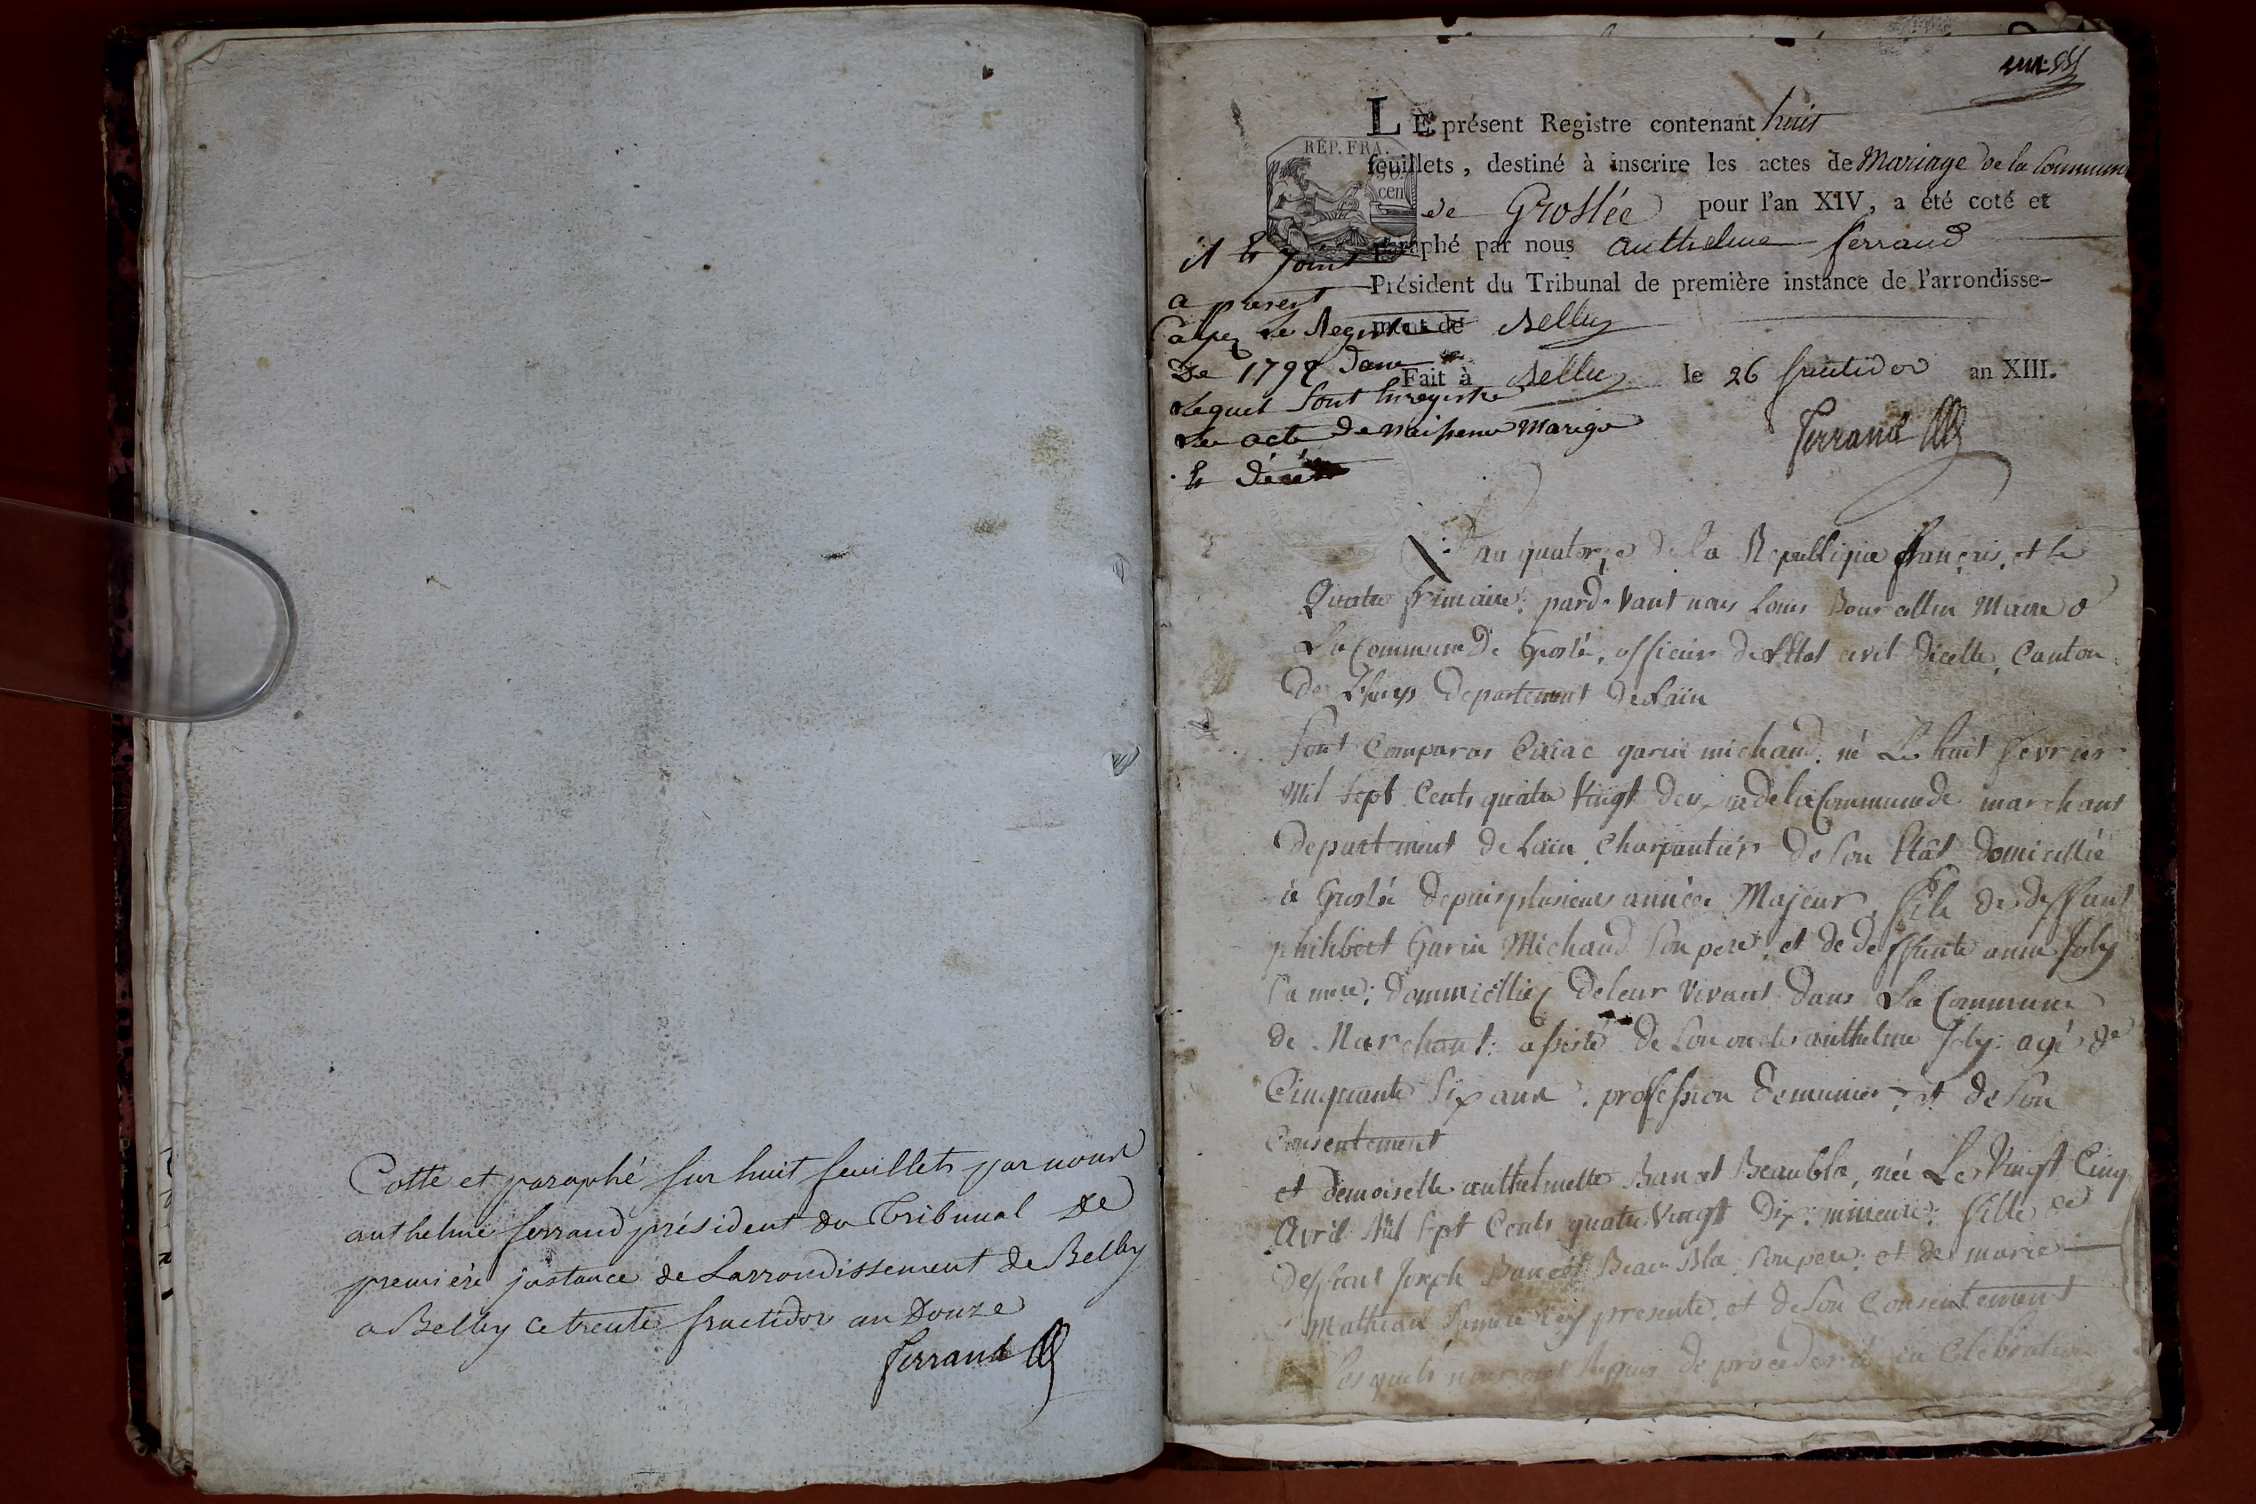 Cotté et paraphé sur huit feuillets par nous
anthelme ferrand président du Tribunal de
première instance de Larrondissement de Belley
a Belley ce trente fructidor an Douze
ferrand
un
LE présent Registre contenant huit
feuillets, destiné à inscrire les actes de Mariage de la Commune
de Groslée pour l'an XIV, a été coté et
paraphé par nous anthelme ferrand
Président du Tribunal de première instance de l'arrondisse-
ment de Belley
Fait à Belley le 26 fructidor an XIII.
ferrand
REP. FRA.
50
cen
il Et joint
a present
Le Registre
De 1792 dans
Lequel sont Enregistre
Les acte De naissance Marige
Et décé
L'an quatorze de la Republique françois, et le
Quatre frimaire; pardevant nous Louis Maire d
La Commune De Groslé, officier de L'Etat civil dicelle, Canton
De Lhuys Departement De Lain
Sont Comparus garin michaud, né Le huit fevrier
Mil Sept Cents quatre Vingt deux de la Commune de marchant
Departement de Lain, Charpantier de son Etât domicillié
à Groslé depuis plusieurs année Majeur, fils de deffunt
philibert Garin Michaud son pere, et de deffunte anne Joly
sa mere; dommicilliez de leur vivant dans La Commune
de Marchant: assisté de son oncle anthelme Joly: agé de
Cinquante Six ans, proffession de munier, et de son
Consentement
et demoiselle anthelmette Banet Beaubla, née Le Vingt Cinq
Avril Mil Sept Cents quatre Vingt Dix; mineure; fille de
deffunt Joseph Banet Beau Bla son pere; et de marie
Mathieu sa mere icy presente, et de son Consentement
Lesquels nous ont Requis de proceder à la Celebration